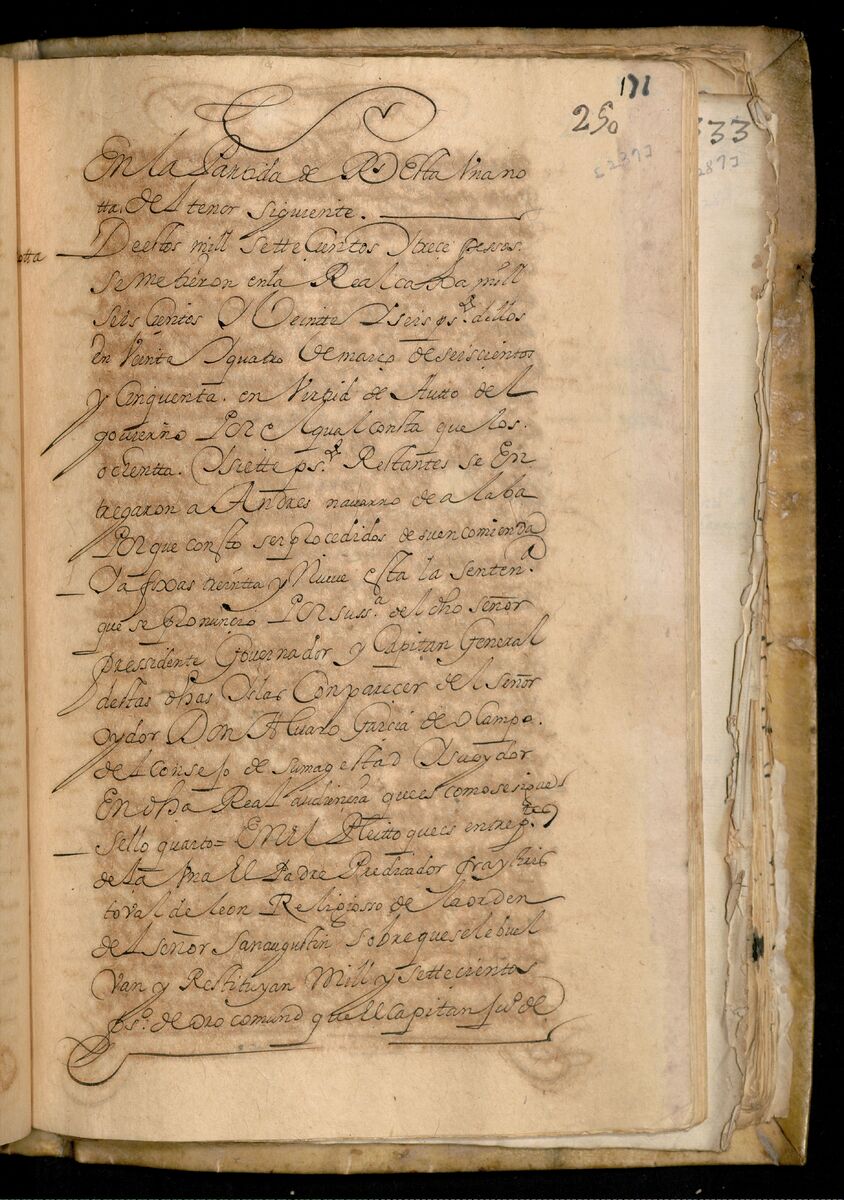 171
250
333
[2371
2871
En la Partida de Rs Esta Una no
tta. del tenor siguiente.
otta
De estos mill settecientos Y trece pessos.
se metieron en la Real caxa mill
seis cientos Y Veintte Y seis ps.º dellos
en Veinte Y quatro de março de seiscientos
y Cinquenta. en Virtud de Autto del
gouierno Por el qual consta que los.
ochentta. Y siette ps.º Restantes se En
tregaron a Andres nauarro de alaba
Por que consto ser procedidos de su encomienda
Ya foxas treintta y Nueve esta la senten.ª
que se pronuncio Por su ss.ª del dho señor
pressidente Gouernador y Capitan General
destas dhas Yslas Con parecer del señor
oydor Don Aluaro Garcia de Ocampo.
del consejo de su magestad Y su oydor
En dha Real audiencia que es como se sigue
Sello quarto= En el Pleitto que es entre p.tes
de la Una El Padre Predicador fray xpis
toval de leon Religiosso de la orden
del señor san augustin sobre que se le buel
Van y Restituyan Mill y settecientos
ps.º de oro comun que el Capitan Ju.º de